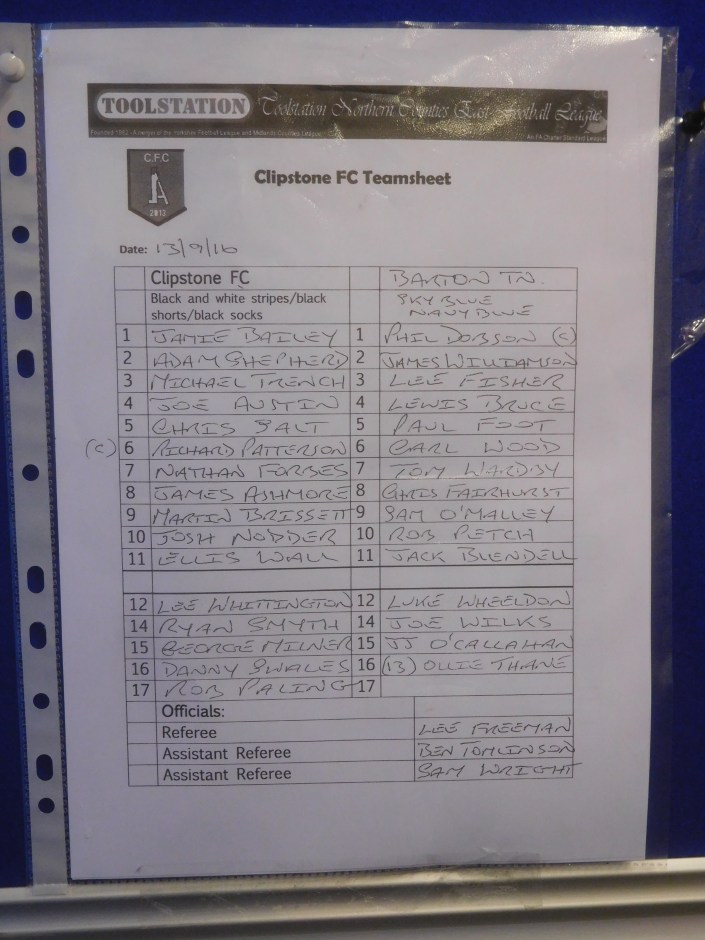 TOOLSTATION Toolstation Northern Counties East Football League
Founded 1982 - A merger of the Yorkshire Football League and Midlands Counties League An FA Charter Standard League
C.F.C
2012
Clipstone FC Teamsheet
Date: 13/9/16
Clipstone FC BARTON TN.
Black and white stripes/black SKY BLUE
shorts/black socks NAVY BLUE
1 JAMIE BAILEY 1 PHIL DOBSON (C)
2 ADAM SHEPHERD 2 JAMES WILLIAMSON
3 MICHAEL TRENCH 3 LEE FISHER
4 JOE AUSTIN 4 LEWIS BRUCE
5 CHRIS SALT 5 PAUL FOOT
(C) 6 RICHARD PATTERSON 6 CARL WOOD
7 NATHAN FORBES 7 TOM WARDBY
8 JAMES ASHMORE 8 CHRIS FAIRHURST
9 MARTIN BRISSETT 9 SAM O'MALLEY
10 JOSH NODDER 10 ROB PETCH
11 ELLIS WALL 11 JACK BLENDELL
12 LEE WHITTINGTON 12 LUKE WHEELDON
14 RYAN SMYTH 14 JOE WILKS
15 GEORGE MILNER 15 JJ O'CALLAHAN
16 DANNY SWALES 16 (13) OLLIE THANE
17 ROB PALING 17
Officials:
Referee LEE FREEMAN
Assistant Referee BEN TOMLINSON
Assistant Referee SAM WRIGHT